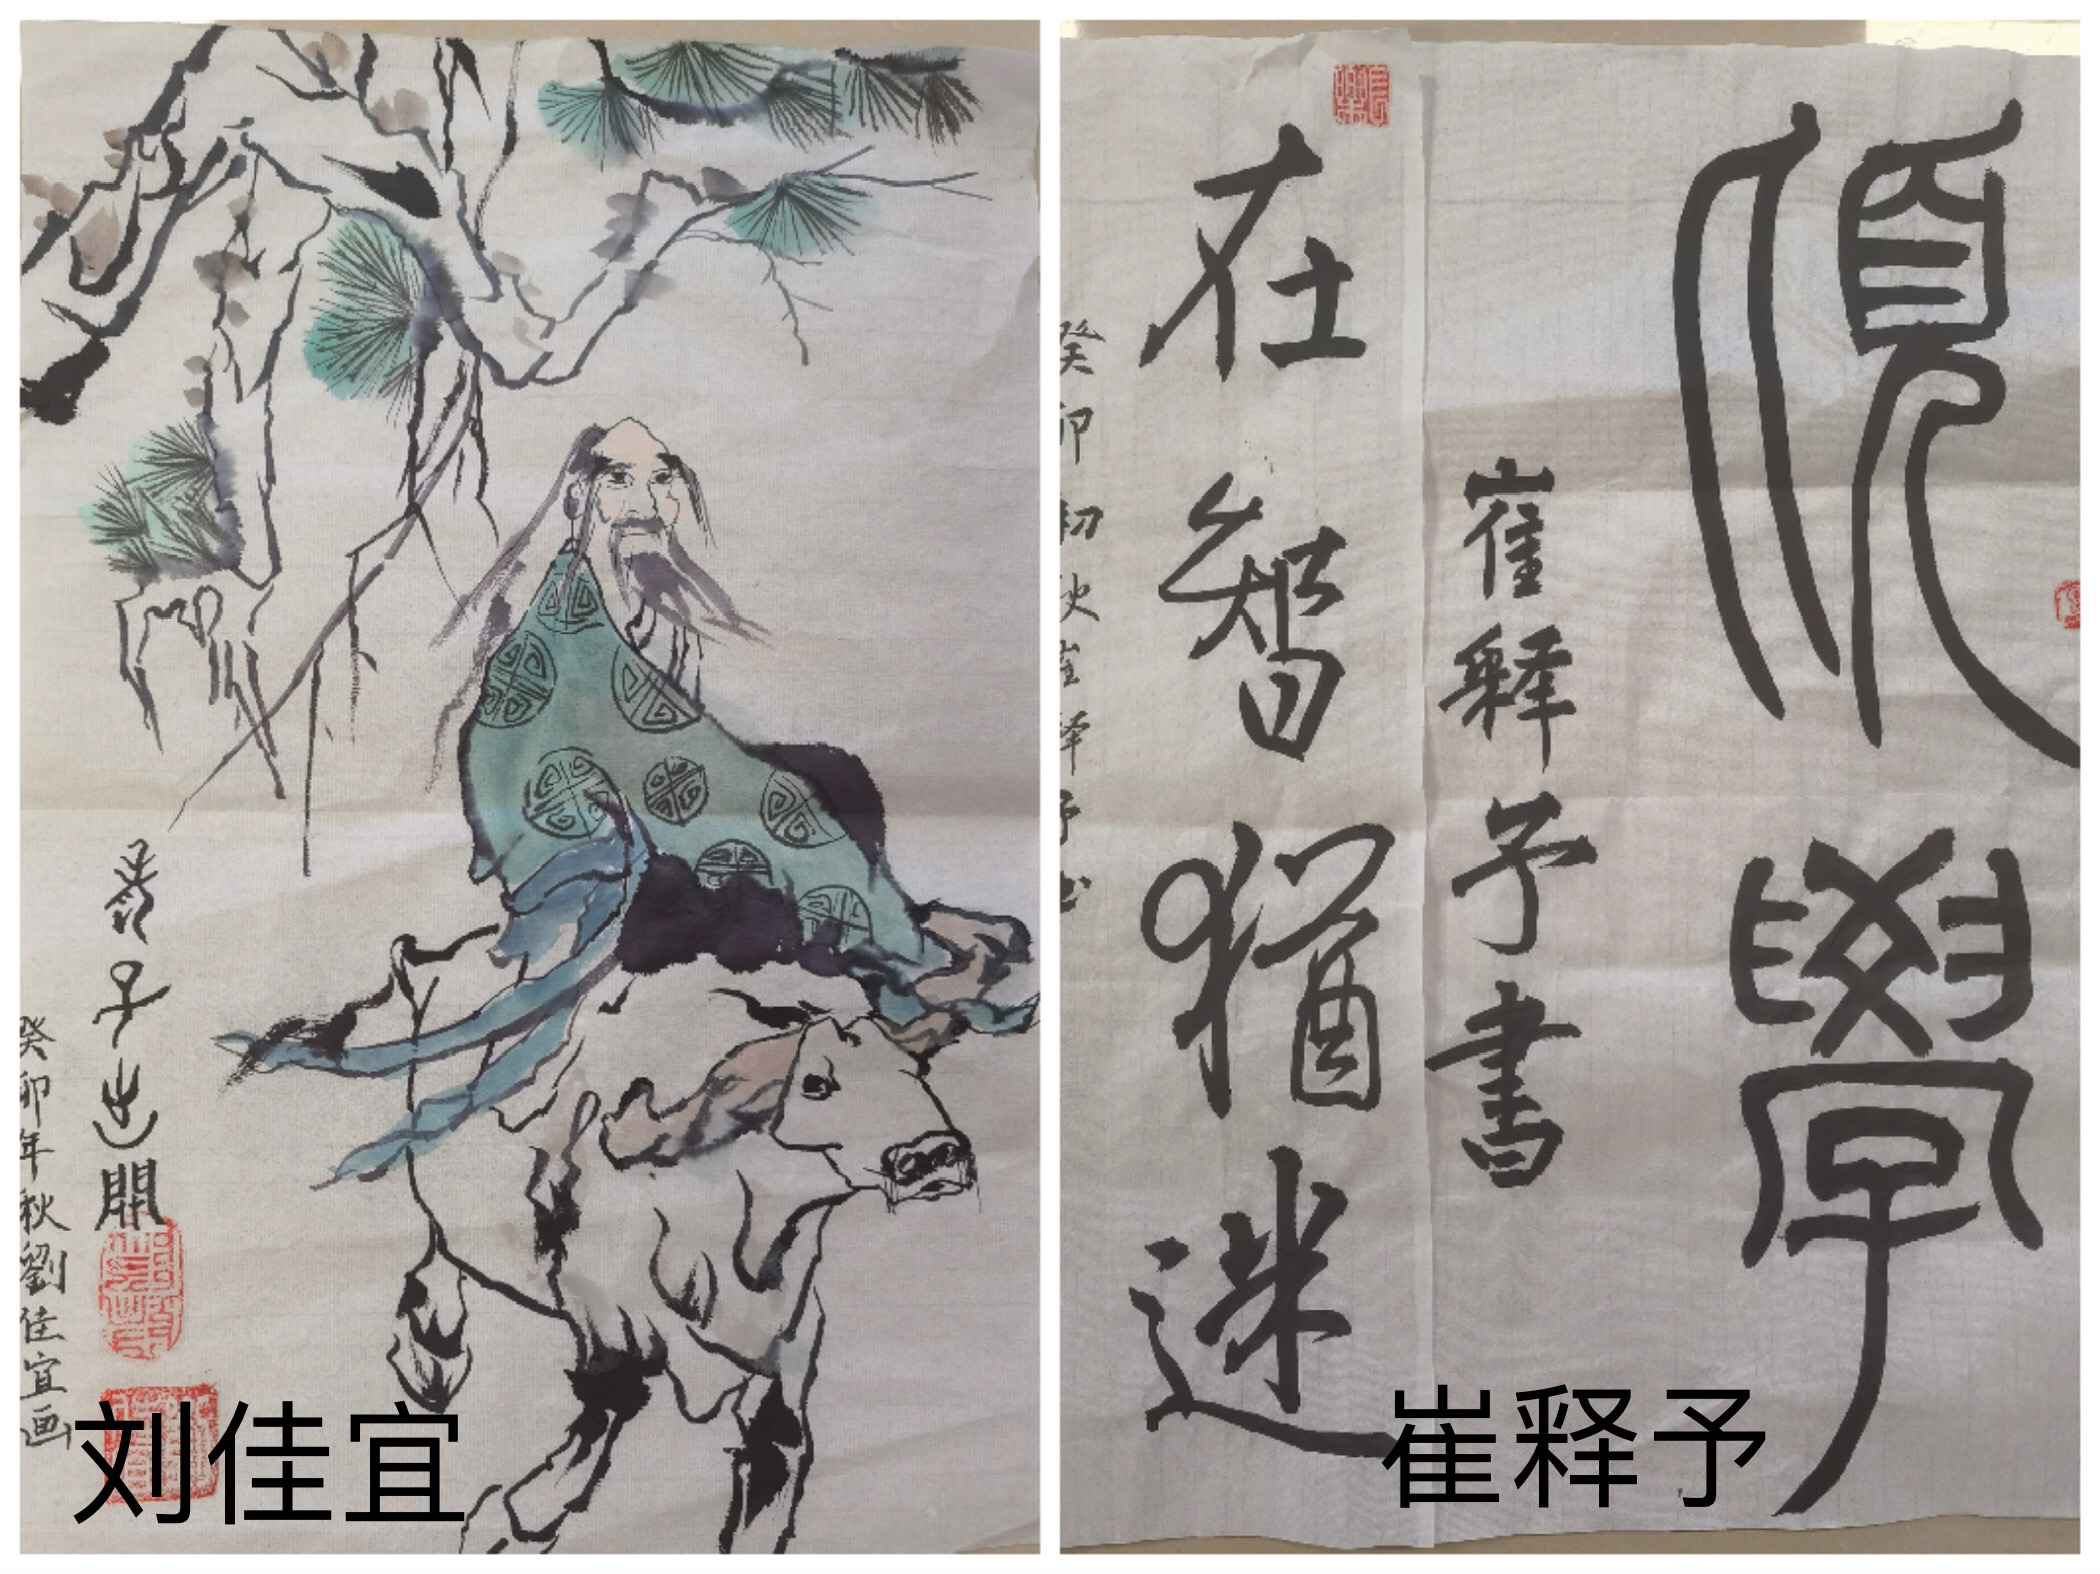 老子出関
癸卯年秋劉佳宜画
刘佳宜
學
崔释予書
在智猶迷
癸卯初秋崔释予书
崔释予